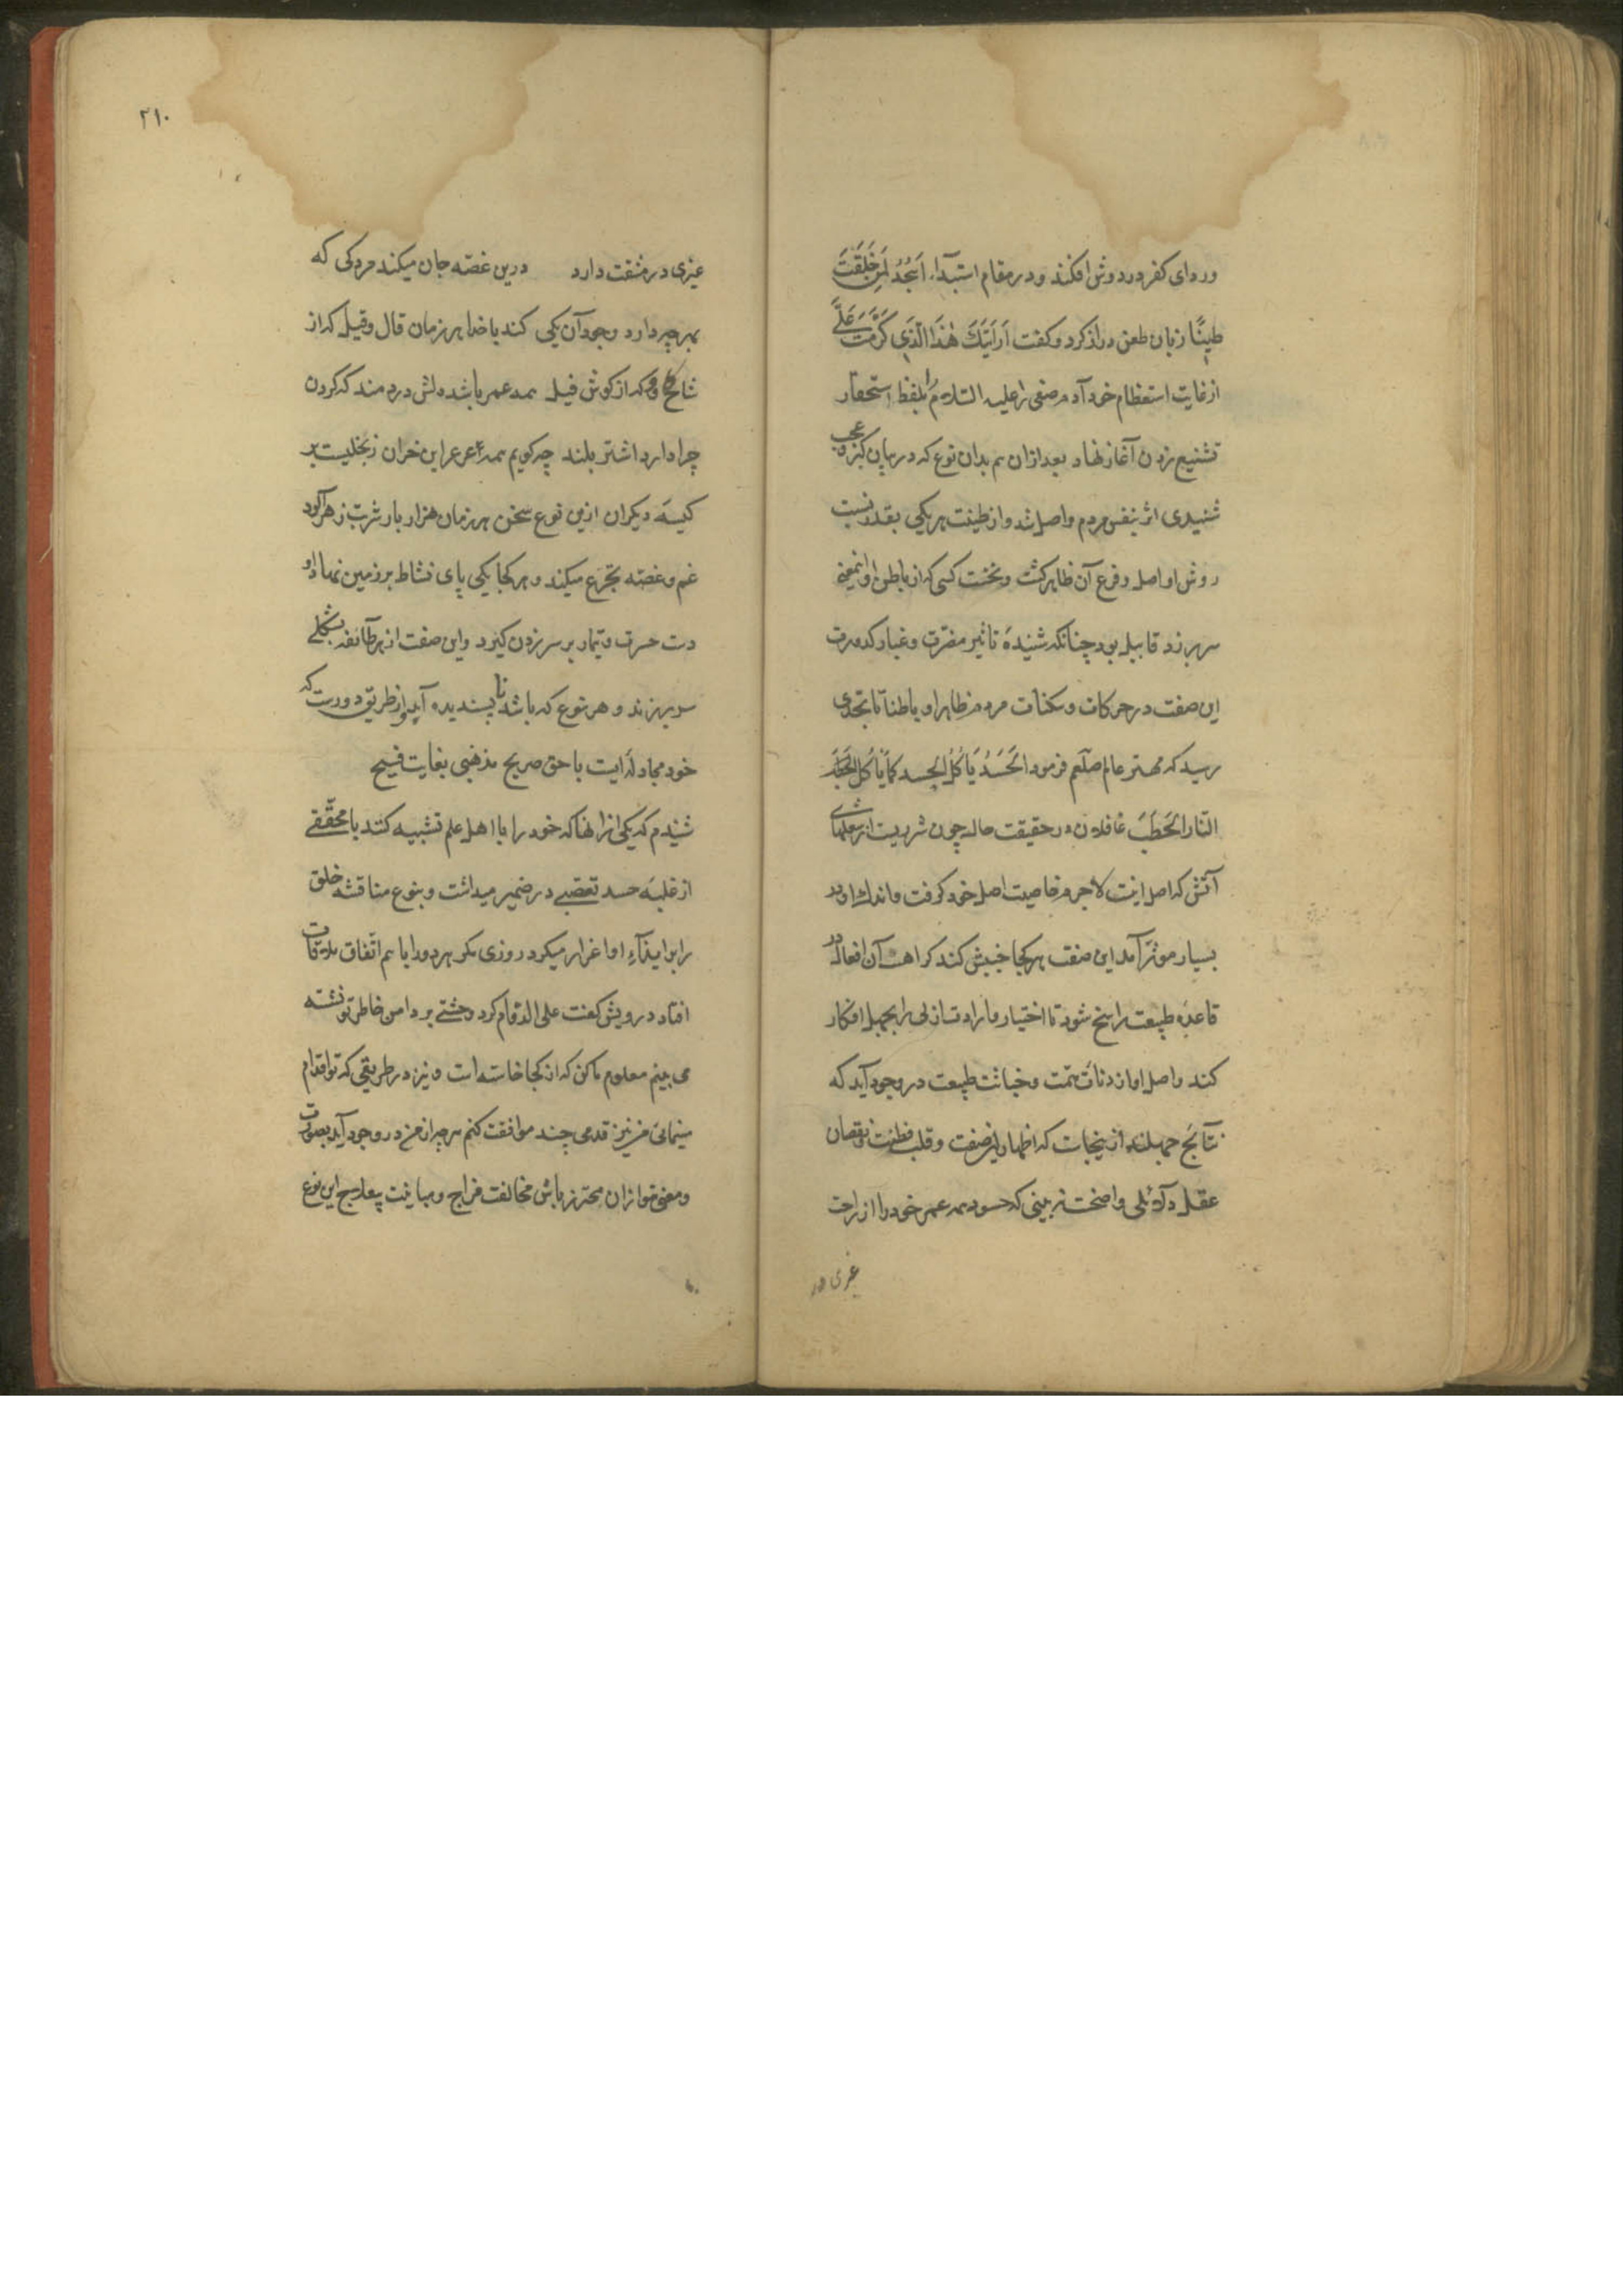 وردای کفر در دوش افکند و در مقام استبدا، اَسْجُدُ لِمَنْ خَلَقْتَ
طینًا زبان طعن دراز کرد و کفت اَرَاَیْتَکَ هٰذَا الَّذی کَرَّمْتَ عَلَیَّ
از غایت استعظام خود آدم صفی را علیه السّلام بلفظ استحقار
تشنیع زدن آغاز نهاد بعد ازان هم بدان نوع که در بیان کبر و عجب
شنیدی اثر بنفس مردم واصل شد و از طینت هر یکی بقدر نسبت
روش او اصل و فرع آن ظاهر کشت و نخست کسی که از باطن او اینمعنی
سر بر زد قابیل بود چنانکه شنیدهٔ تاثیر مضرّت و غبار کدورت
این صفت در حرکات و سکنات مردم ظاهرا و باطنا تا بحدی
رسید که مهتر عالم صلّعم فرمود الحَسَدُ یَاکُلُ الجسد کَمَا یَاکُلُ
النّار الحَطَبَ غافلان در حقیقت حال چون شرریست از شعلهای
آتش که اصل اینست لاجرم خاصیت اصل خود کرفت و اندک او در
بسیار موثر آمد این صفت هر کجا جنبش کند کراهت آن افعال در
قاعدهٔ طبیعت راسخ شود تا اختیار و ارادت ازلی را بجهل انکار
کند و اصل او از دنائت همّت و خباثت طبیعت در وجود آید که
نتائج جهلند از ینجاست که اظهار این صفت و قلب فطنت و نقصان
عقل دلائلی واضحت نه بینی که حسود همه عمر خود را از راحت
غیری در
۲۱۰
غیری در مشقت دارد درین غصّه جان میکند مردکی که
بهر چیز دارد وجود آن یکی کند با خدا هر زمان قال و قیل که از
شاخ کاو و که از کوش فیل همه عمر باشد دلش دردمند که کردن
چرا دارد اشتر بلند چه کویم همه عرعر این خران ز بخلیست بر
کیسهٔ دیکران ازین نوع سخن هر زمان هزار بار شربت زهرآلود
غم و غصّه تجرّع میکند و هر کجا یکی پای نشاط بر زمین نهاد او
دست حسرت و تیمار بر سر زدن کیرد و این صفت از هر طائفه بشکلی
سر بر زند و هر نوع که باشد ناپسندیده آید و از طریق دورست که
خود مجادله ایست با حق صریح مذهبی بغایت قبیح
شنیدم که یکی از انها که خود را با اهل علم تشبیه کنند با محقّقی
از غلبهٔ حسد تعصّبی در ضمیر میداشت و بنوع مناقشه خلق
را بر ایذاء او اغرار میکرد روزی مکر هر دو را با هم اتّفاق ملاقات
افتاد درویش کفت علی الدّوام کرد وحشتی بر دامن خاطر تو نشسته
می بینم معلوم ما کن که از کجا خاسته است و نیز در طریقی که تو اقدام
مینمائی من نیز قدمی چند موافقت کنم هر چه از من در وجود آید بصورت
و معنی تو ازان محترز باش مخالفت مزاج و مباینت این نوع